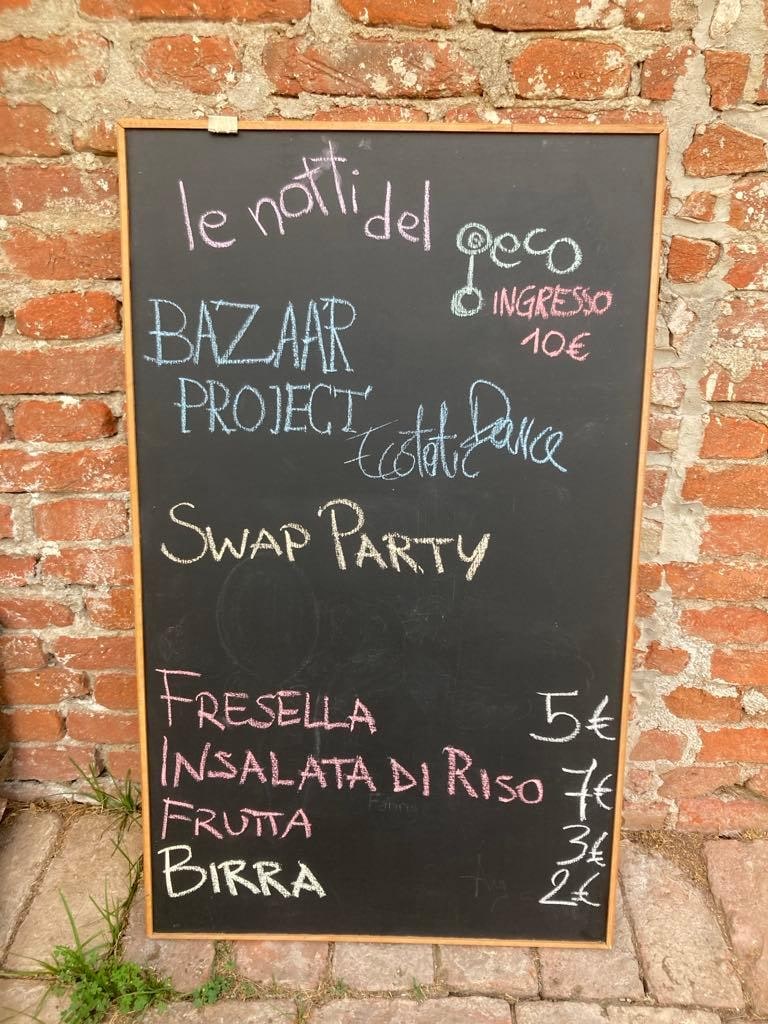 le notti del geco
INGRESSO
10€
BAZAAR
PROJECT
Ecstatic Dance
SWAP PARTY
FRESELLA 5€
INSALATA DI RISO 7€
FRUTTA 3€
BIRRA 2€